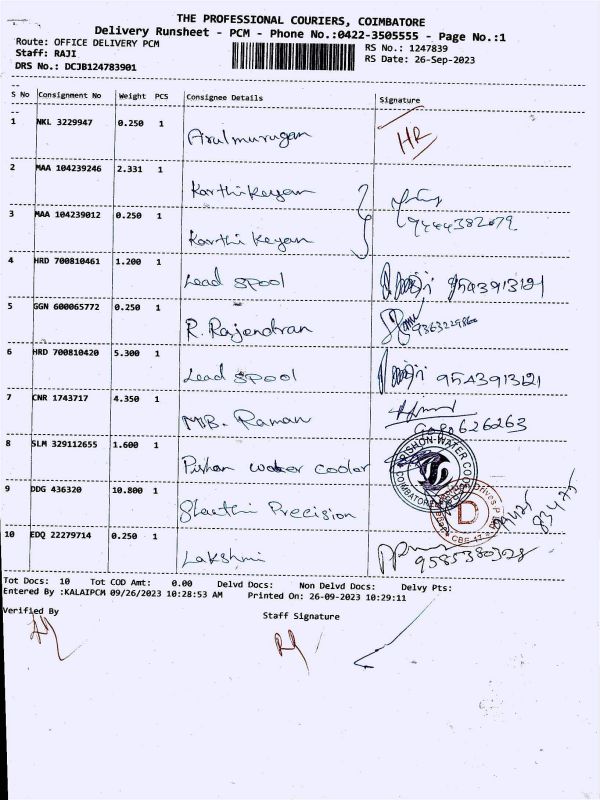 THE PROFESSIONAL COURIERS, COIMBATORE
Delivery Runsheet - PCM - Phone No.:0422-3505555 - Page No.:1
Route: OFFICE DELIVERY PCM RS No.: 1247839
Staff: RAJI RS Date: 26-Sep-2023
DRS No.: DCJB124783901
S No Consignment No Weight PCS Consignee Details Signature
1 NKL 3229947 0.250 1 Arulmurugan HR
2 MAA 104239246 2.331 1 Karthikeyan
9444382079
3 MAA 104239012 0.250 1 Karthikeyan
4 HRD 700810461 1.200 1 Lead spool 9543913121
5 GGN 600065772 0.250 1 R. Rajendran 9363229860
6 HRD 700810420 5.300 1 Lead spool 9543913121
7 CNR 1743717 4.350 1 M.B. Raman
626263
8 SLM 329112655 1.600 1 Pishon water cooler
PISHON-WATER CO
COIMBATORE
9 DDG 436320 10.800 1 Precision
D
83475
10 EDQ 22279714 0.250 1 Lakshmi 9585380328
Tot Docs: 10 Tot COD Amt: 0.00 Delvd Docs: Non Delvd Docs: Delvy Pts:
Entered By :KALAIPCM 09/26/2023 10:28:53 AM Printed On: 26-09-2023 10:29:11
Verified By Staff Signature